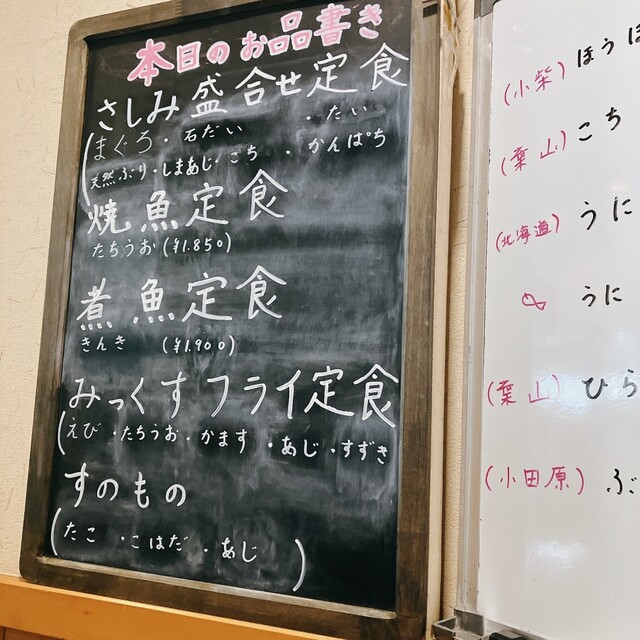 本日のお品書き
さしみ盛合せ定食
(まぐろ・石だい ・たい
天然ぶり・しまあじ・こち ・かんぱち
焼魚定食
たちうお(¥1.850)
煮魚定食
きんき (¥1.900)
みっくすフライ定食
(えび・たちうお・かます・あじ・すずき
すのもの
(たこ・こはだ・あじ )
(小柴) ほうぼ
(葉山) こち
(北海道) うに
うに
(葉山) ひら
(小田原) ぶ